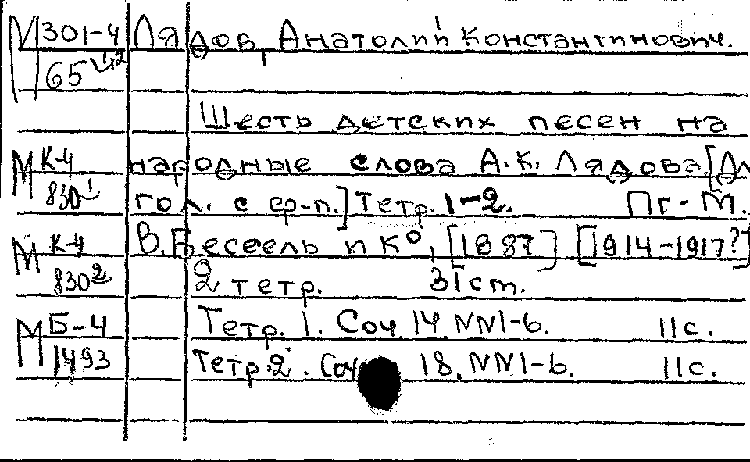 М 301-4 Лядов, Анатолий Константинович.
65
Шесть детских песен на
М К-4 народные слова А.К. Лядова [Дл
830¹ гол. с фр-п.] Тетр. 1-2. Пг-М.
М К-4 В. Бессель и К⁰, [1887] [1914-1917?]
830² 2 тетр. 31 ст.
М Б-4 Тетр. 1. Соч. 14 NN1-6. 11с.
1493 Тетр. 2. Соч. 18. NN1-6. 11с.